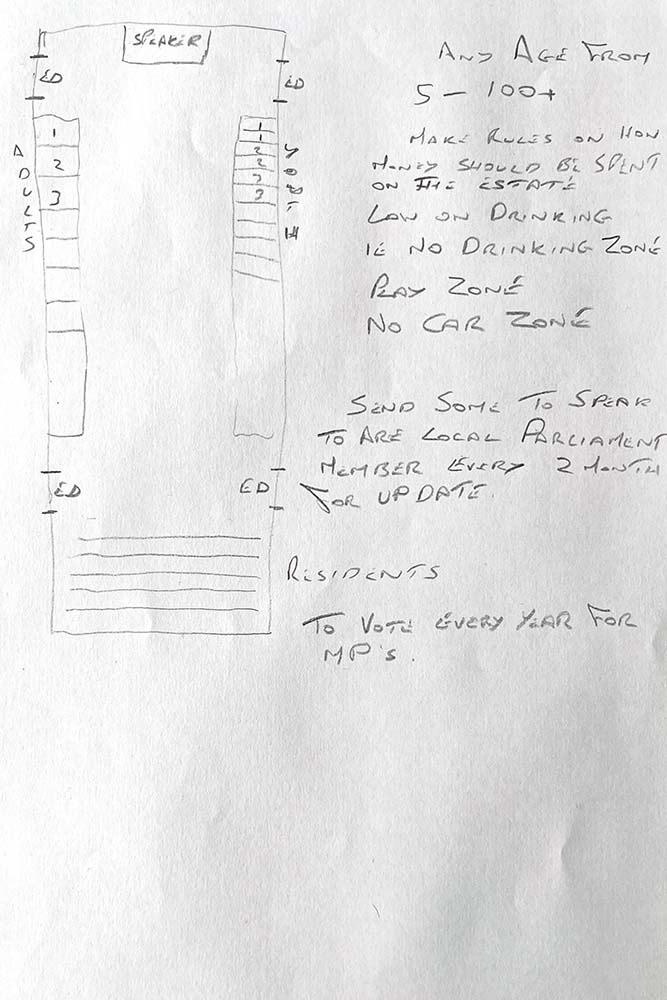 SPEAKER
ED
ED
ADULTS
1
2
3
1
1
2
2
3
3
YOUTH
ED
ED
ANY AGE FROM
5 - 100+
MAKE RULES ON HOW
MONEY SHOULD BE SPENT
ON THE ESTATE
LOW ON DRINKING
IE NO DRINKING ZONE
PLAY ZONE
NO CAR ZONE
SEND SOME TO SPEAK
TO ARE LOCAL PARLIAMENT
MEMBER EVERY 2 MONTH
FOR UPDATE.
RESIDENTS
TO VOTE EVERY YEAR FOR
MP's.